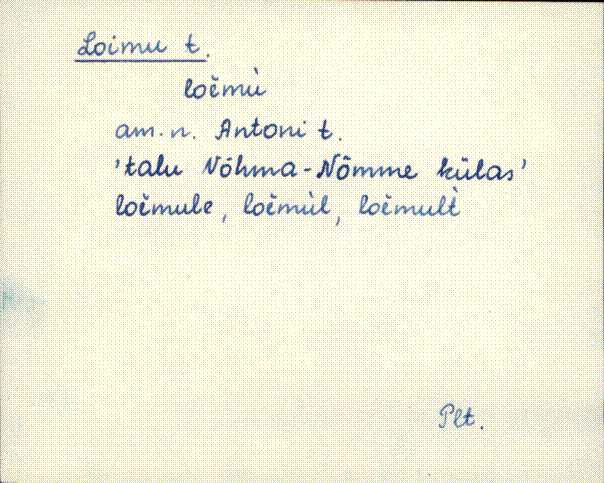 Loimu t.
loĕmù
am. n. Antoni t.
'talu Nõhma-Nõmme külas'
loĕmule, loĕmùl, loĕmult̀
Plt.